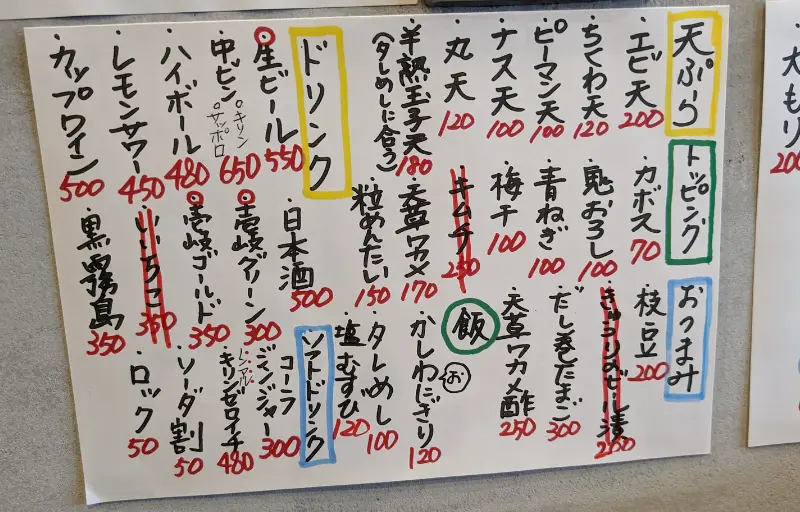 天ぷら
・エビ天 200
・ちくわ天 120
・ピーマン天 100
・ナス天 100
・丸天 120
・半熟玉子天 180
(タレめしに合う)
トッピング
・カボス 70
・鬼おろし 100
・青ねぎ 100
・梅干 100
・キムチ 250
・天草ワカメ 170
・粒めんたい 150
おつまみ
・枝豆 200
・きゅうりのビール漬 200
・だし巻たまご 300
・天草ワカメ酢 250
飯
・かしわおにぎり 120
・タレめし 100
・塩むすび 120
ドリンク
・生ビール 550
・中ビン キリン サッポロ 650
・ハイボール 480
・レモンサワー 450
・カップワイン 500
・日本酒 500
・壱岐グリーン 300
・壱岐ゴールド 350
・いいちこ 350
・黒霧島 350
ソフトドリンク
・コーラ
・ジンジャー 300
・ノンアル キリンゼロイチ 480
・ソーダ割 50
・ロック 50
大もり
200